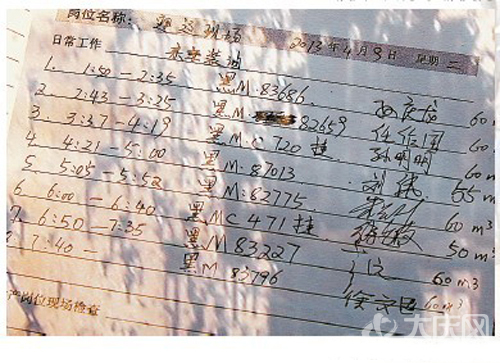 岗位名称: 现场 2013年4月9日 星期二
日常工作 装油
1. 1:50-2:35 黑M·83686 60m
2. 2:43-3:25 黑M·82659 任作国 60
3. 3:37-4:19 黑M·C720挂 孙明明 60m
4. 4:21-5:00 黑M·87013 刘 55m
5. 5:05-5:52 黑M·82775 60m³
6. 6:00-6:40 黑MC471挂 50m³
7. 6:50-7:35 黑M83227 60m³
7:40- 黑M83796 徐文 60m³
产岗位现场检查
大庆网